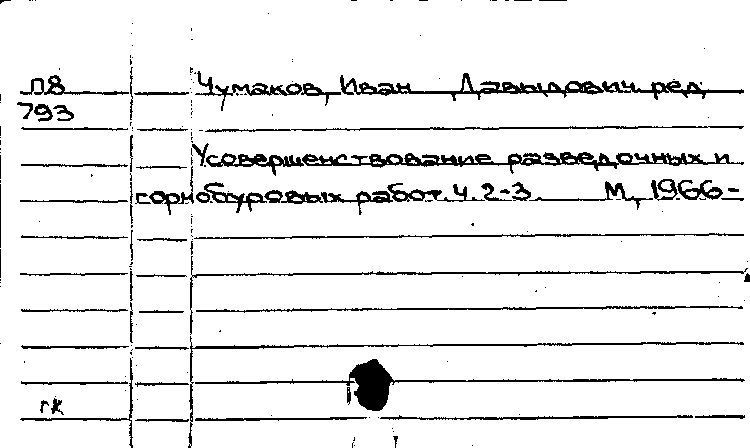 П8 Чумаков, Иван Давыдович. ред.
793
Усовершенствование разведочных и
горнобуровых работ. Ч. 2-3. М., 1966-
гк